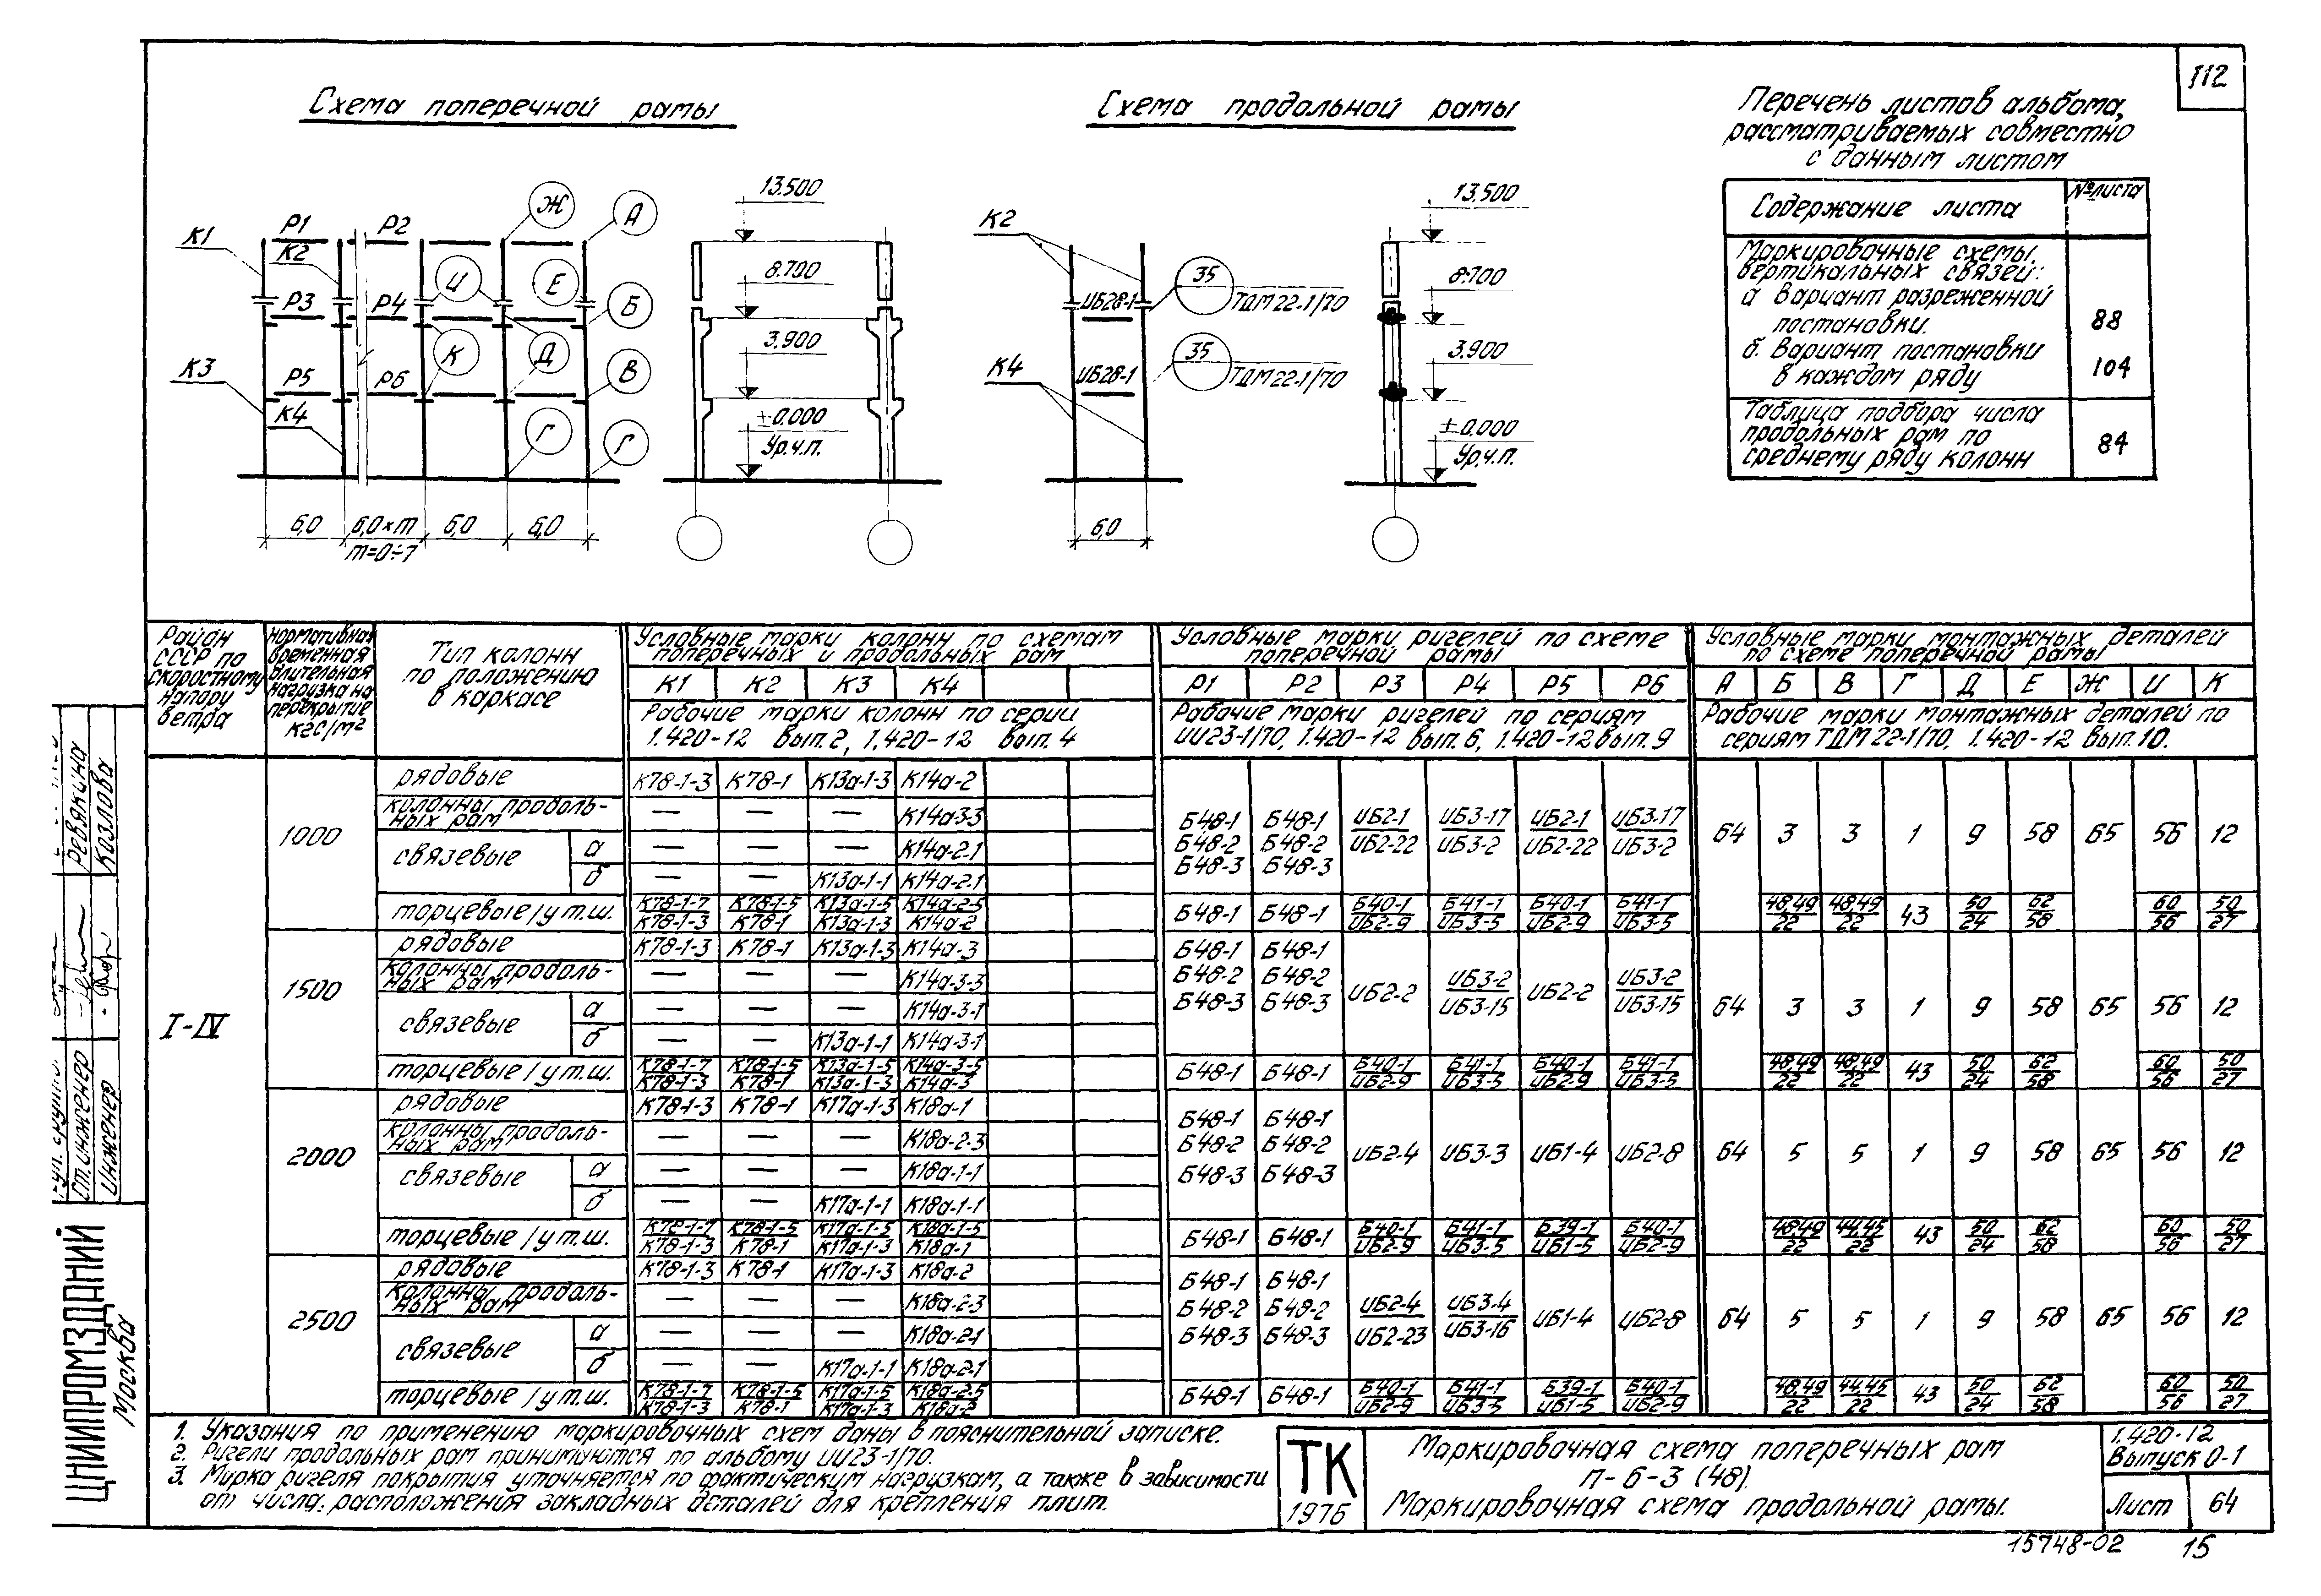 112
Схема поперечной рамы
Схема продольной рамы
Перечень листов альбома,
рассматриваемых совместно
с данным листом
Содержание листа
№ листа
Маркировочные схемы
вертикальных связей:
а вариант разреженной
постановки.
88
б. вариант постановки
в каждом ряду
104
Таблица подбора числа
продольных рам по
среднему ряду колонн
84
К1 Р1 К2 Р2 Ж А
Р3 Р4 И Е Б
К3 Р5 Р6 К Д В
К4 Г Г
6,0 6,0×m 6,0 6,0
m=0÷7
13.500
8.700
3.900
±0.000
Ур.ч.п.
К2
ИБ28-1 35 ТДМ22-1/70
К4 ИБ28-1 35 ТДМ22-1/70
6,0
13.500
8.700
3.900
±0.000
Ур.ч.п.
Район СССР по скоростному напору ветра
Нормативная временная длительная нагрузка на перекрытие кгс/м²
Тип колонн по положению в каркасе
Условные марки колонн по схемам
поперечных и продольных рам
К1 К2 К3 К4
Рабочие марки колонн по серии
1.420-12 вып.2, 1.420-12 вып.4
Условные марки ригелей по схеме
поперечной рамы
Р1 Р2 Р3 Р4 Р5 Р6
Рабочие марки ригелей по сериям
ИИ23-1/70, 1.420-12 вып.6, 1.420-12 вып.9
Условные марки монтажных деталей
по схеме поперечной рамы
А Б В Г Д Е Ж И К
Рабочие марки монтажных деталей по
сериям ТДМ22-1/70, 1.420-12 вып.10.
I-IV
1000
рядовые К78-1-3 К78-1 К13а-1-3 К14а-2
колонны продоль-
ных рам — — — К14а-3-3
связевые а — — — К14а-2-1
б — — К13а-1-1 К14а-2-1
Б48-1 Б48-1 ИБ2-1 ИБ3-17 ИБ2-1 ИБ3-17
Б48-2 Б48-2 ИБ2-22 ИБ3-2 ИБ2-22 ИБ3-2
Б48-3 Б48-3
64 3 3 1 9 58 65 56 12
торцевые/у т.ш. К78-1-7 К78-1-5 К13а-1-5 К14а-2-5
К78-1-3 К78-1 К13а-1-3 К14а-2
Б48-1 Б48-1 Б40-1 Б41-1 Б40-1 Б41-1
ИБ2-9 ИБ3-5 ИБ2-9 ИБ3-5
48,49 48,49 43 50 62 60 50
22 22 24 58 56 27
1500
рядовые К78-1-3 К78-1 К13а-1-3 К14а-3
колонны продоль-
ных рам — — — К14а-3-3
связевые а — — — К14а-3-1
б — — К13а-1-1 К14а-3-1
Б48-1 Б48-1
Б48-2 Б48-2 ИБ2-2 ИБ3-2 ИБ2-2 ИБ3-2
Б48-3 Б48-3 ИБ3-15 ИБ3-15
64 3 3 1 9 58 65 56 12
торцевые/у т.ш. К78-1-7 К78-1-5 К13а-1-5 К14а-3-5
К78-1-3 К78-1 К13а-1-3 К14а-3
Б48-1 Б48-1 Б40-1 Б41-1 Б40-1 Б41-1
ИБ2-9 ИБ3-5 ИБ2-9 ИБ3-5
48,49 48,49 43 50 62 60 50
22 22 24 58 56 27
2000
рядовые К78-1-3 К78-1 К17а-1-3 К18а-1
колонны продоль-
ных рам — — — К18а-2-3
связевые а — — — К18а-1-1
б — — К17а-1-1 К18а-1-1
Б48-1 Б48-1
Б48-2 Б48-2 ИБ2-4 ИБ3-3 ИБ1-4 ИБ2-8
Б48-3 Б48-3
64 5 5 1 9 58 65 56 12
торцевые/у т.ш. К78-1-7 К78-1-5 К17а-1-5 К18а-1-5
К78-1-3 К78-1 К17а-1-3 К18а-1
Б48-1 Б48-1 Б40-1 Б41-1 Б39-1 Б40-1
ИБ2-9 ИБ3-5 ИБ1-5 ИБ2-9
48,49 44,45 43 50 62 60 50
22 22 24 58 56 27
2500
рядовые К78-1-3 К78-1 К17а-1-3 К18а-2
колонны продоль-
ных рам — — — К18а-2-3
связевые а — — — К18а-2-1
б — — К17а-1-1 К18а-2-1
Б48-1 Б48-1
Б48-2 Б48-2 ИБ2-4 ИБ3-4 ИБ1-4 ИБ2-8
Б48-3 Б48-3 ИБ2-23 ИБ3-16
64 5 5 1 9 58 65 56 12
торцевые/у т.ш. К78-1-7 К78-1-5 К17а-1-5 К18а-2-5
К78-1-3 К78-1 К17а-1-3 К18а-2
Б48-1 Б48-1 Б40-1 Б41-1 Б39-1 Б40-1
ИБ2-9 ИБ3-5 ИБ1-5 ИБ2-9
48,49 44,45 43 50 62 60 50
22 22 24 58 56 27
1. Указания по применению маркировочных схем даны в пояснительной записке.
2. Ригели продольных рам принимаются по альбому ИИ23-1/70.
3. Марка ригеля покрытия уточняется по фактическим нагрузкам, а также в зависимости
от числа, расположения закладных деталей для крепления плит.
ТК
1976
Маркировочная схема поперечных рам
П-6-3 (48).
Маркировочная схема продольной рамы.
1.420-12
Выпуск 0-1
Лист 64
15748-02 15
ЦНИИПРОМЗДАНИЙ
Москва
Ст.инженер Ревякина
Инженер Козлова